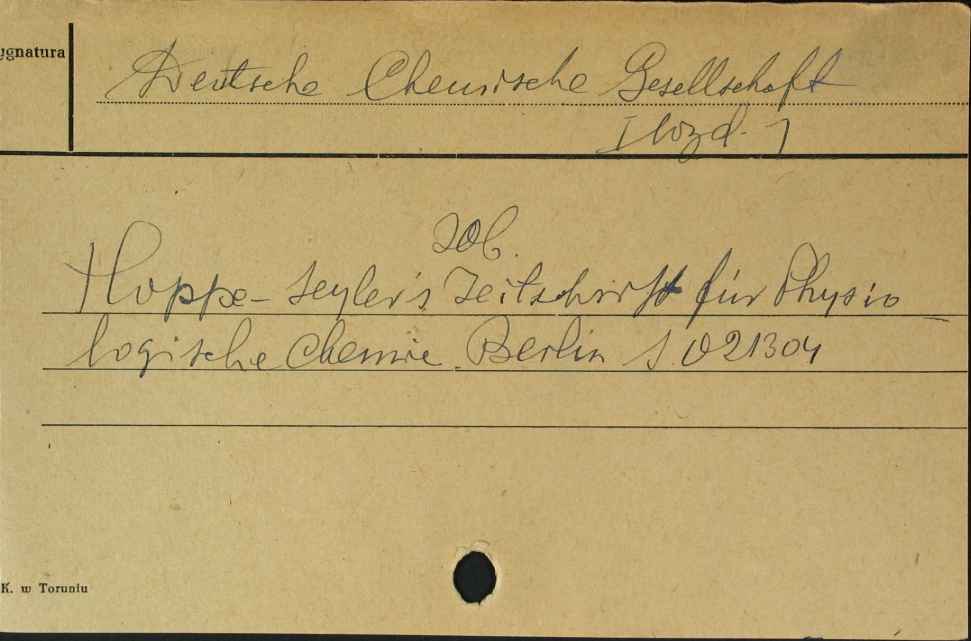 ygnatura
Deutsche Chemische Gesellschaft
zob.
Hoppe-Seyler's Zeitschrift für Physio
logische Chemie. Berlin S. 021304
K. w Toruniu